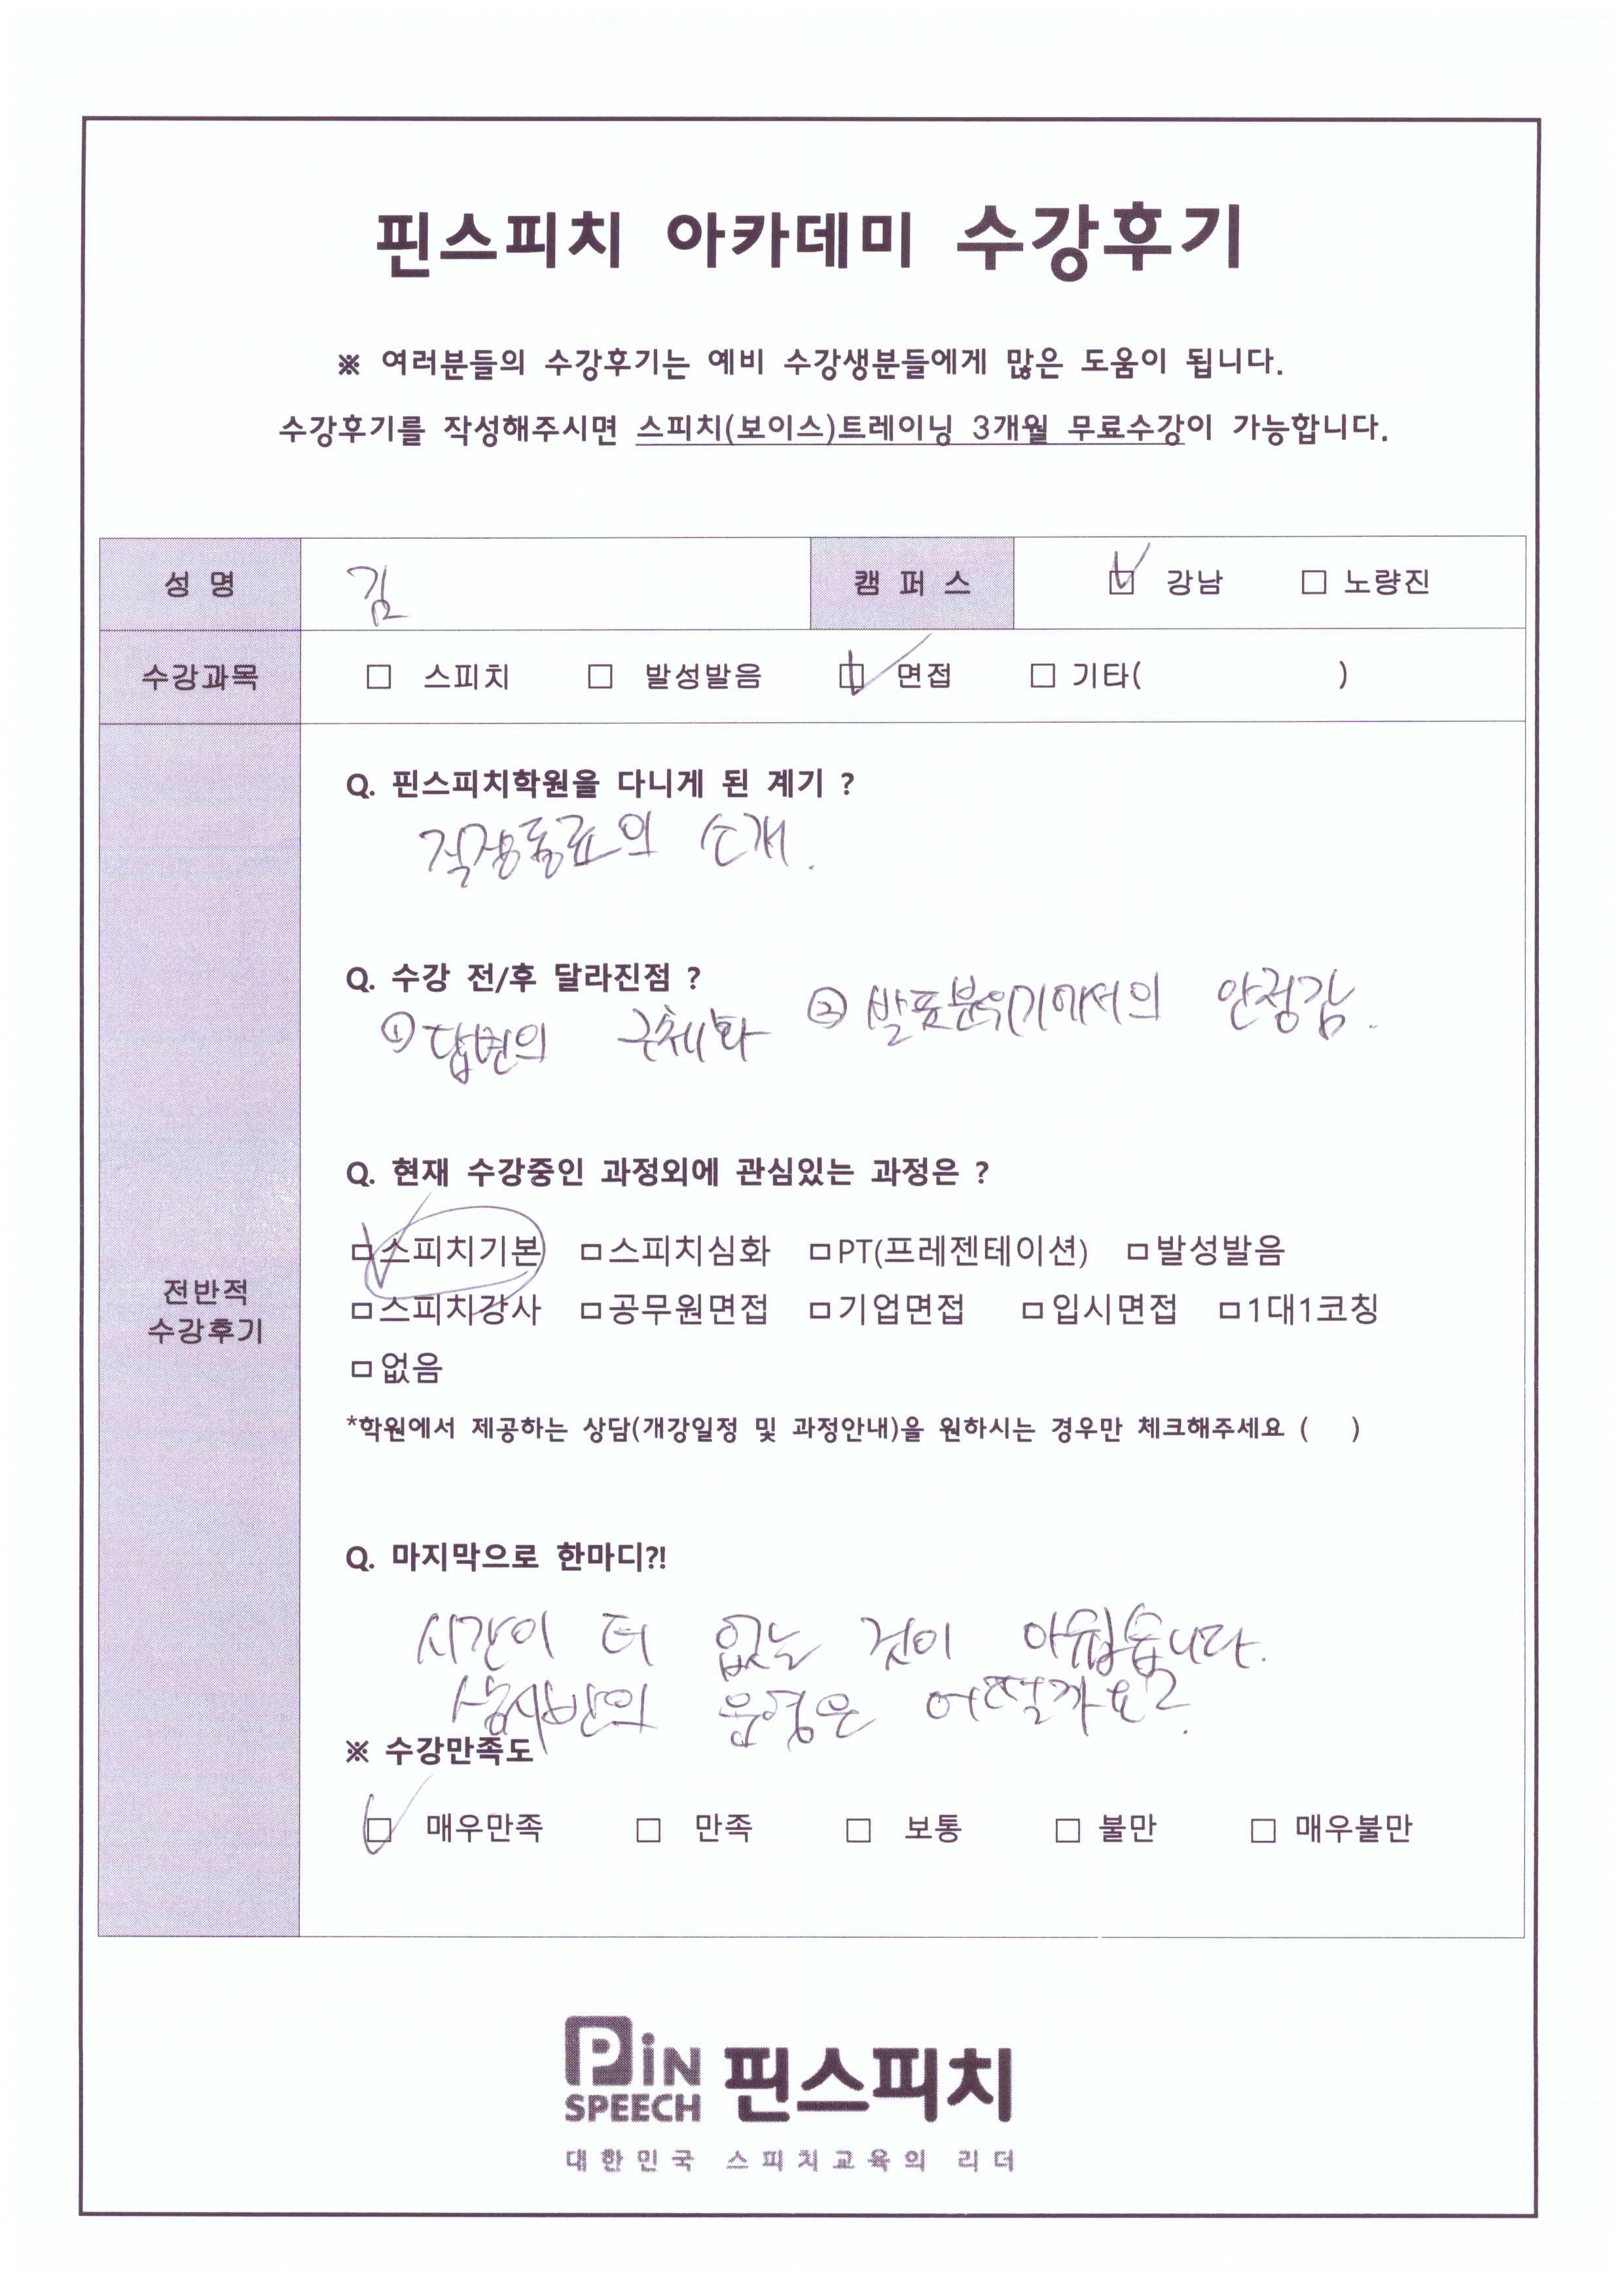 핀스피치 아카데미 수강후기
※ 여러분들의 수강후기는 예비 수강생분들에게 많은 도움이 됩니다.
수강후기를 작성해주시면 스피치(보이스)트레이닝 3개월 무료수강이 가능합니다.
성 명 김 캠 퍼 스 ☑ 강남 □ 노량진
수강과목 □ 스피치 □ 발성발음 ☑ 면접 □ 기타( )
Q. 핀스피치학원을 다니게 된 계기 ?
직장동료의 소개.
Q. 수강 전/후 달라진점 ?
① 답변의 구체화 ② 발표분위기에서의 안정감.
Q. 현재 수강중인 과정외에 관심있는 과정은 ?
☑스피치기본 □스피치심화 □PT(프레젠테이션) □발성발음
전반적
수강후기
□스피치강사 □공무원면접 □기업면접 □입시면접 □1대1코칭
□없음
*학원에서 제공하는 상담(개강일정 및 과정안내)을 원하시는 경우만 체크해주세요 ( )
Q. 마지막으로 한마디?!
시간이 더 없는 것이 아쉽습니다.
운영은 어떨까요?
※ 수강만족도
☑ 매우만족 □ 만족 □ 보통 □ 불만 □ 매우불만
PiN
SPEECH
핀스피치
대한민국 스피치교육의 리더